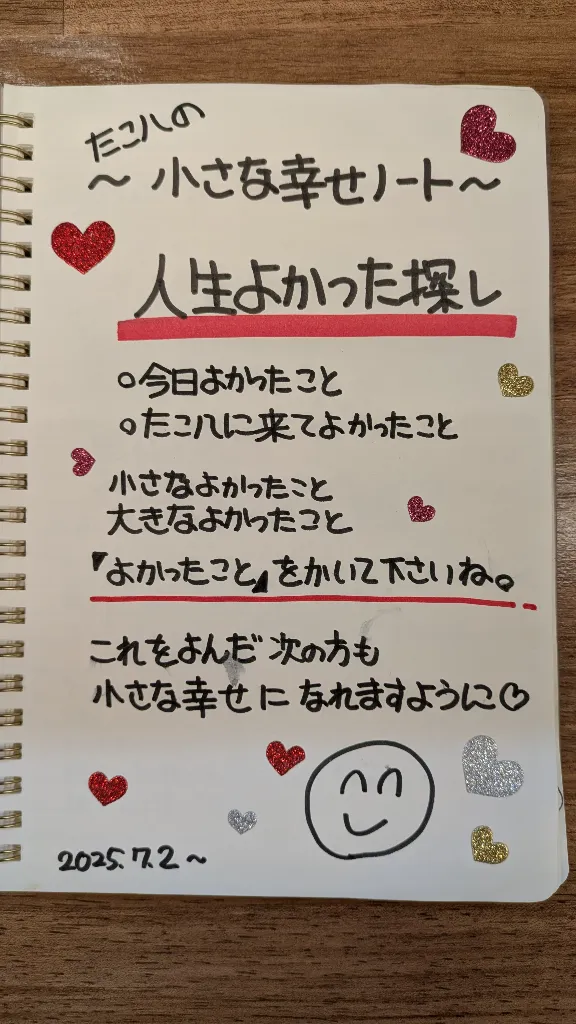 たこ八の
～小さな幸せノート～
人生よかった探し
○今日よかったこと
○たこ八に来てよかったこと
小さなよかったこと
大きなよかったこと
『よかったこと』をかいて下さいね。
これをよんだ次の方も
小さな幸せになれますように♡
2025.7.2～